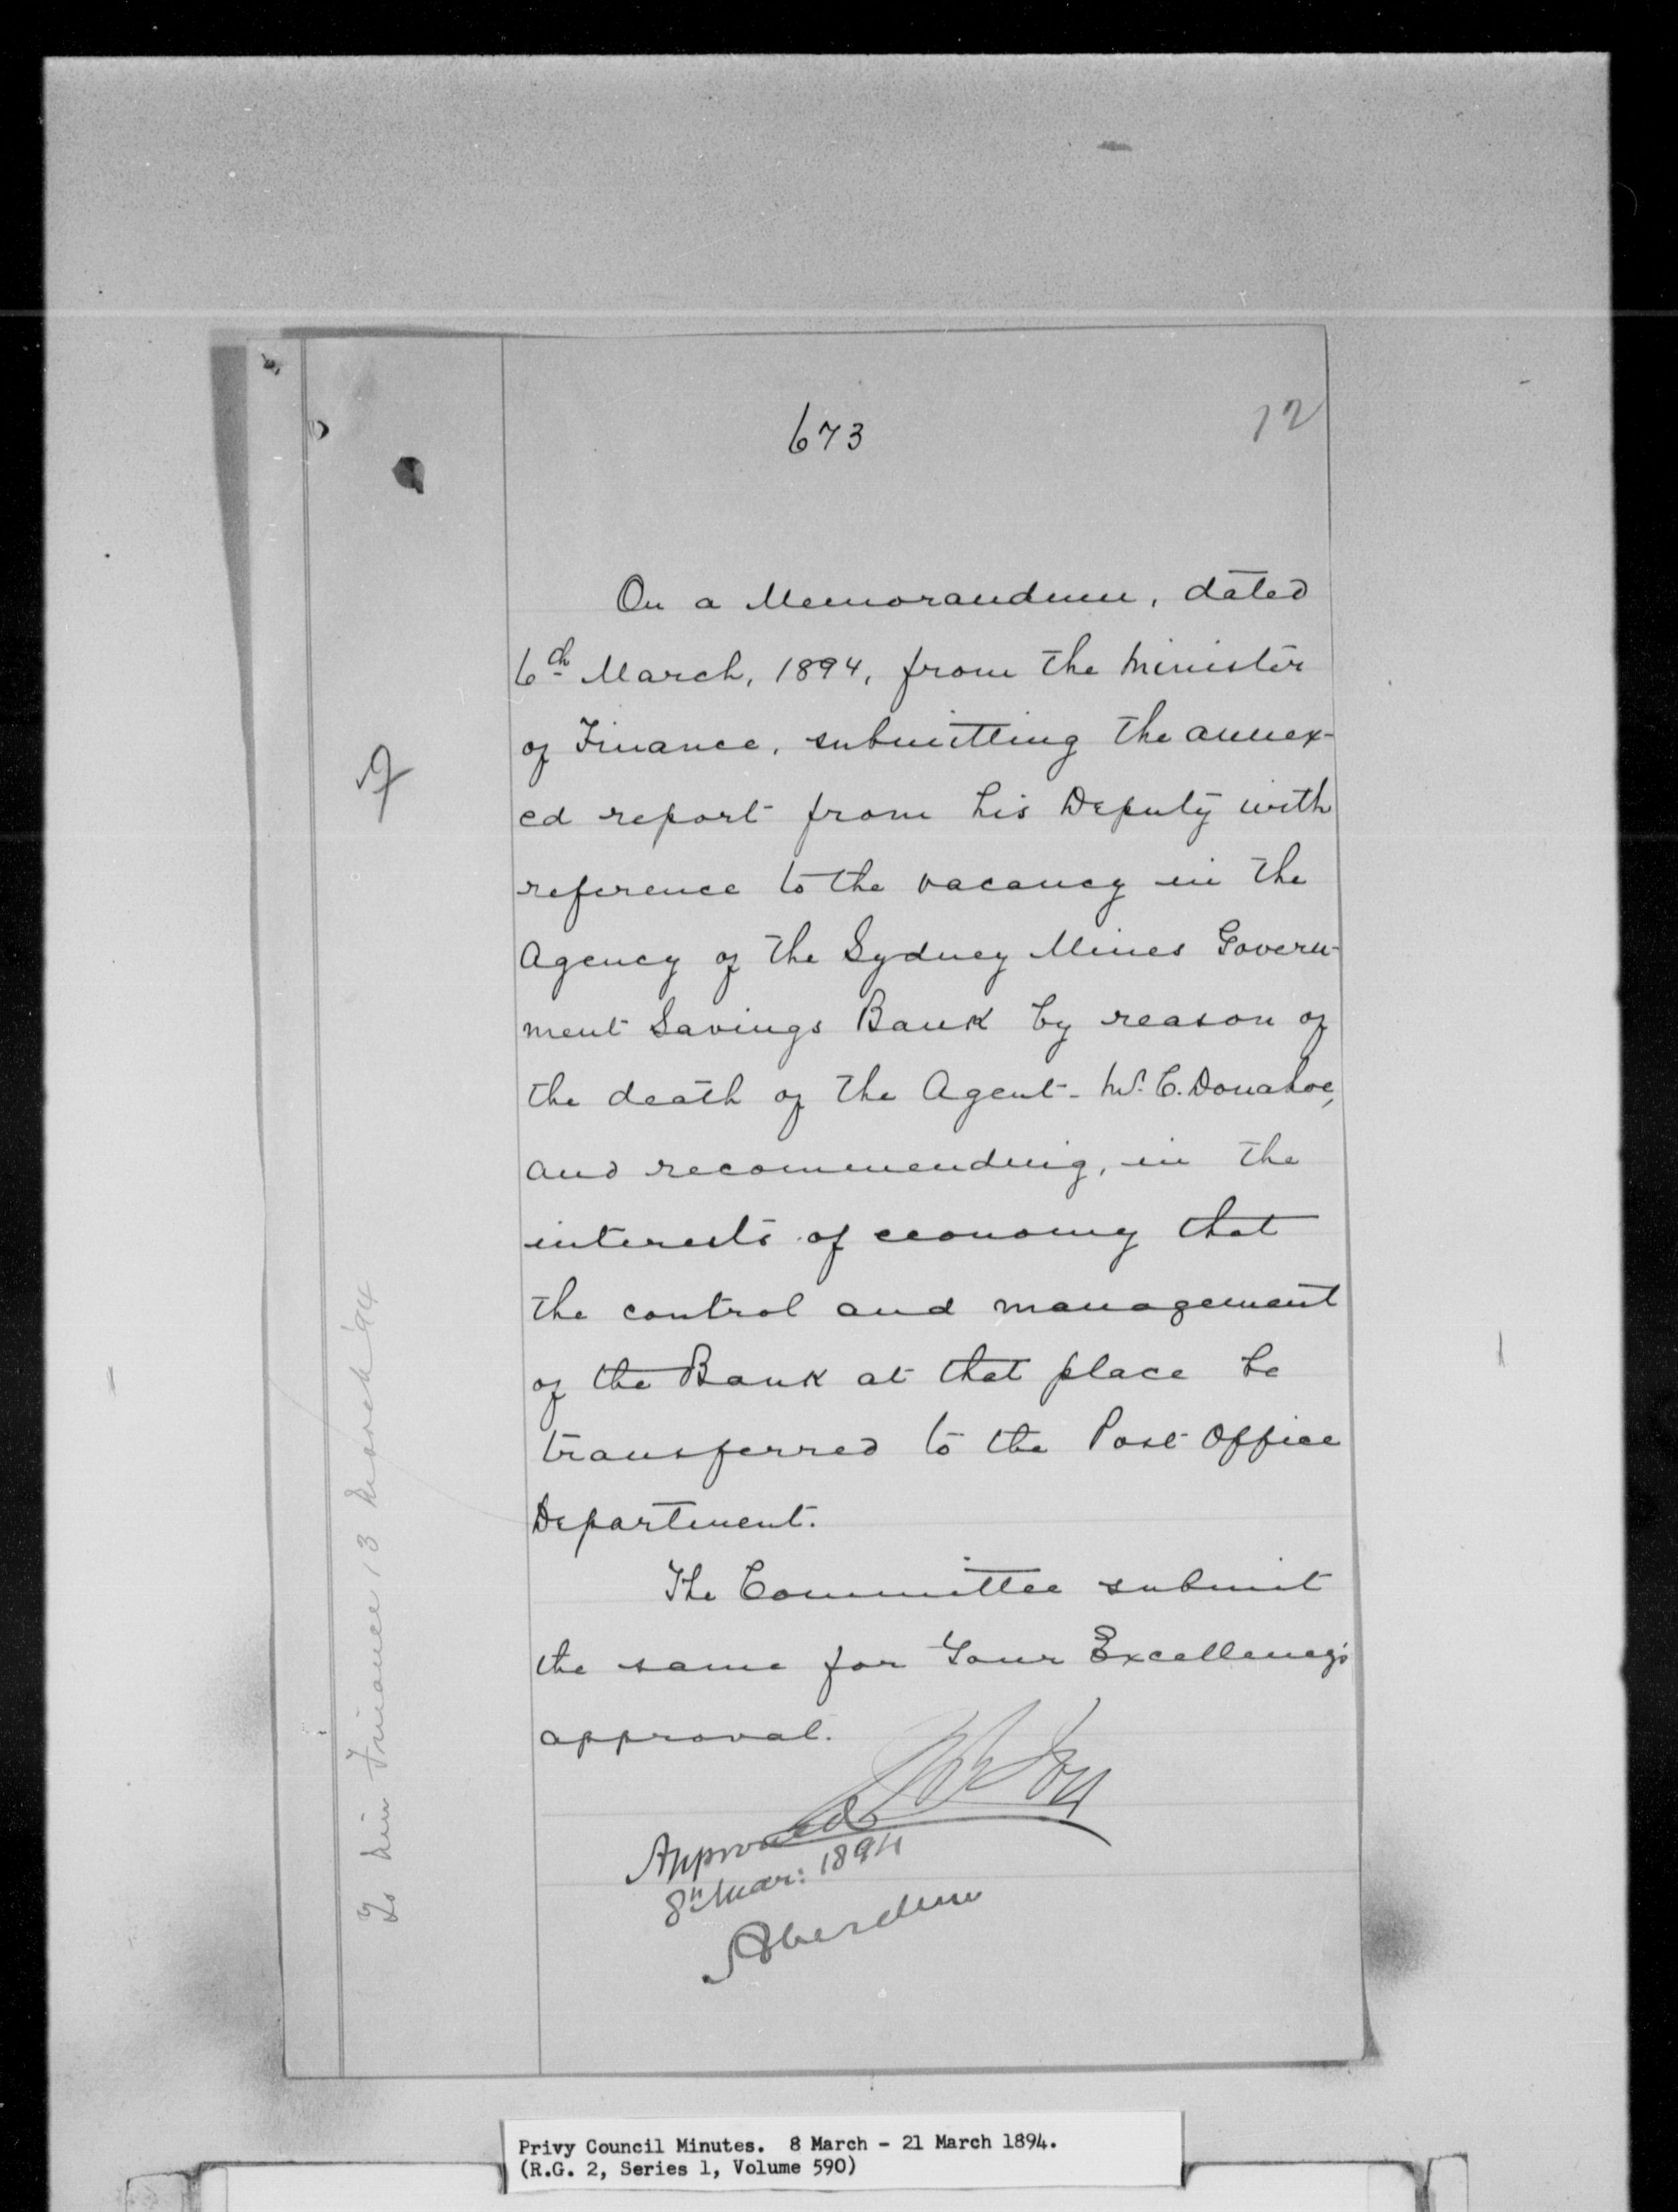 673
12
On a Memorandum, dated
6th March, 1894, from the Minister
of Finance, submitting the annex-
ed report from his Deputy with
reference to the vacancy in the
Agency of the Sydney Mines Govern-
ment Savings Bank by reason of
the death of the Agent - W. C. Donahoe,
and recommending, in the
interests of economy that
the control and management
of the Bank at that place be
transferred to the Post Office
Department.
The Committee submit
the same for Your Excellency's
approval.
Approved
8th Mar: 1894
Aberdeen
To Min Finance 13 March '94
Privy Council Minutes. 8 March - 21 March 1894.
(R.G. 2, Series 1, Volume 590)